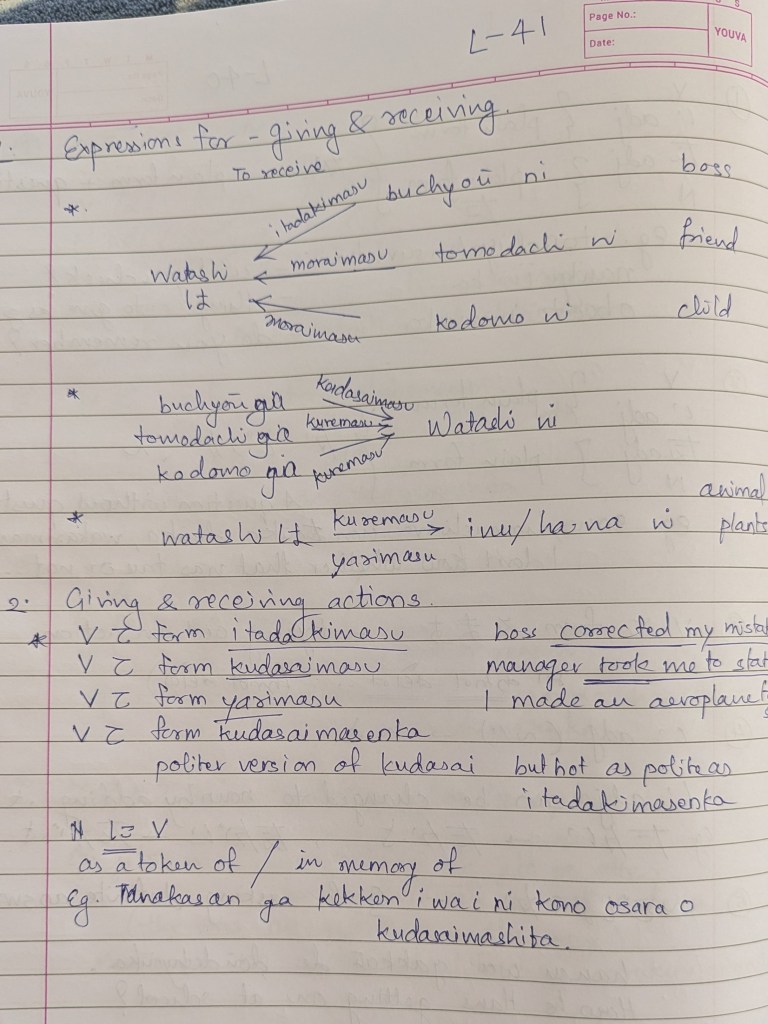 L-41
Page No.:
Date:
YOUVA
Expressions for - giving & receiving.
To receive
*. itadakimasu buchyoū ni boss
watashi は moraimasu tomodachi ni friend
moraimasu kodomo ni child
* buchyoū ga kudasaimasu
tomodachi ga kuremasu Watashi ni
kodomo ga kuremasu
animal
* watashi は kuremasu inu/hana ni plants
yarimasu
2. Giving & receiving actions.
* V て form itadakimasu boss corrected my
V て form kudasaimasu manager took me to
V て form yarimasu I made an aeroplane
V て form kudasaimasenka
politer version of kudasai but not as polite as
itadakimasenka
N に V
as a token of / in memory of
Eg. Tanakasan ga kekken iwai ni kono osara o
kudasaimashita.